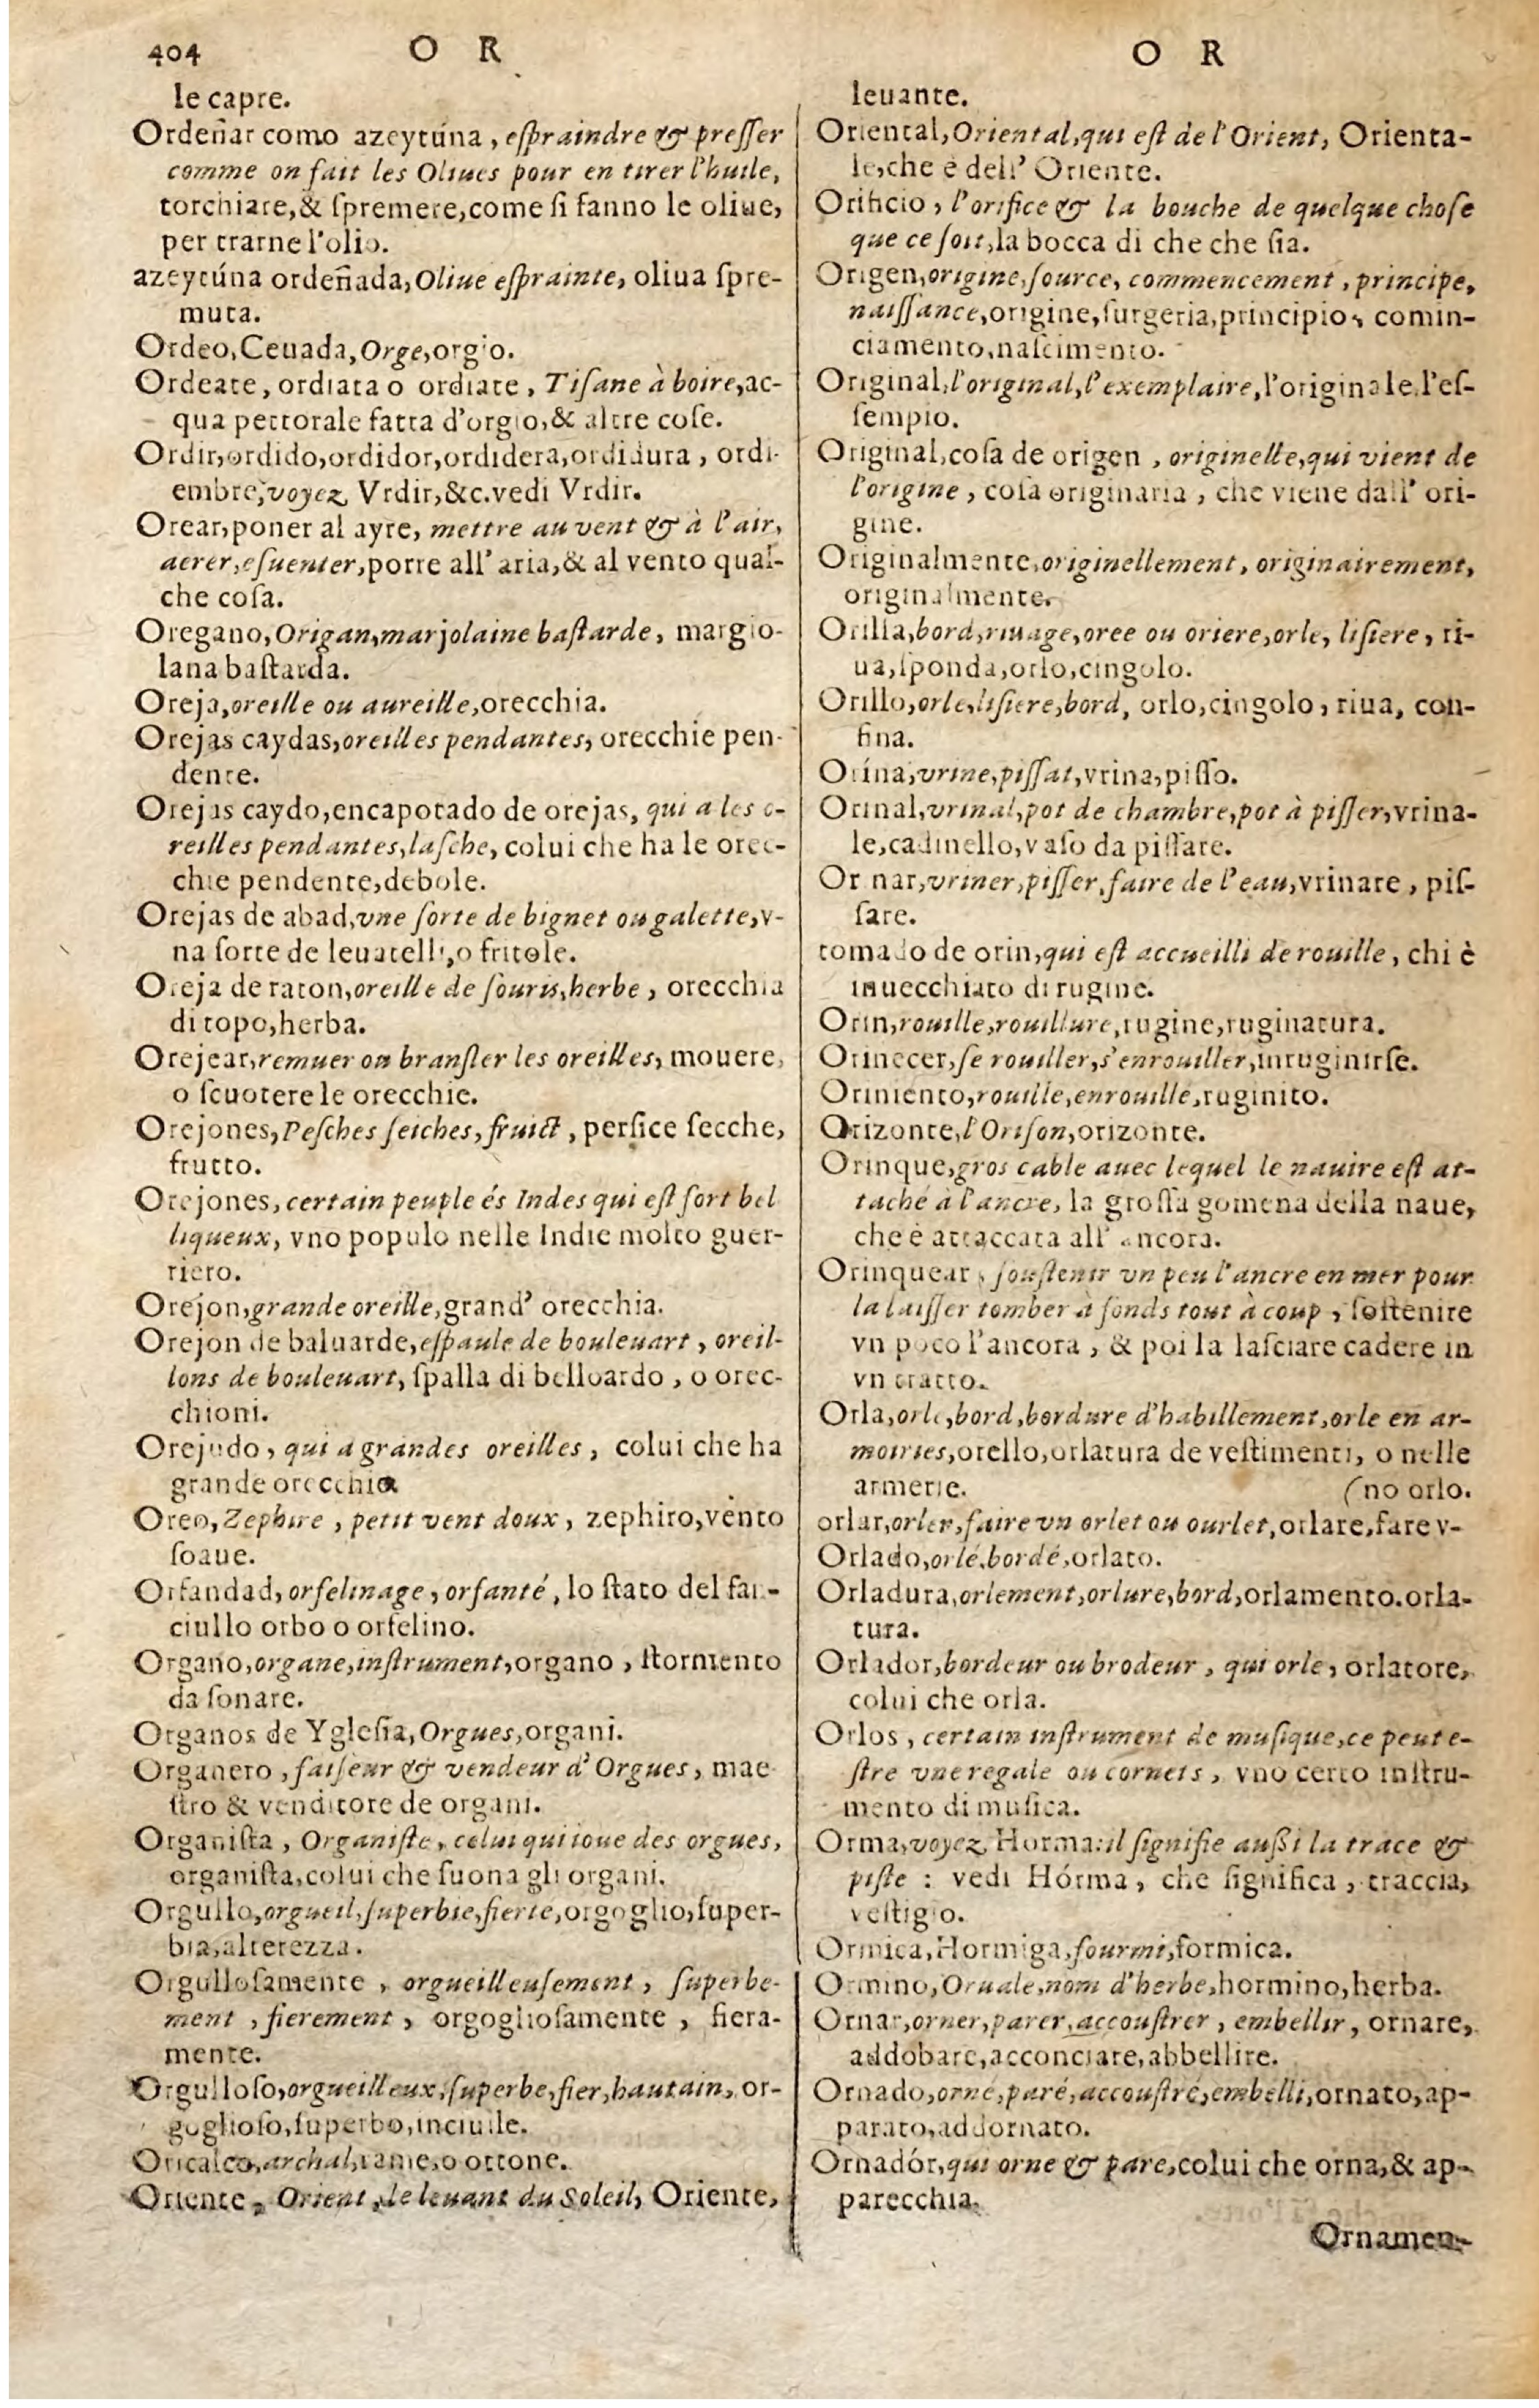 404 O R
le capre.
Ordeñar como azeytúna, eſpraindre & preſſer
comme on fait les Oliues pour en tirer l'huile,
torchiare,& ſpremere,come ſi fanno le oliue,
per trarne l'olio.
azeytúna ordeñada,Oliue eſprainte, oliua ſpre-
muta.
Ordeo,Ceuada,Orge,orgio.
Ordeate, ordiata o ordiate, Tiſane à boire,ac-
qua pettorale fatta d'orgio,& altre coſe.
Ordir,ordido,ordidor,ordidera,ordidura, ordi-
embre,voyez Vrdir,&c.vedi Vrdir.
Orear,poner al ayre, mettre au vent & à l'air,
aerer,eſuenter,porre all'aria,& al vento qual-
che coſa.
Oregano,Origan,marjolaine baſtarde, margio-
lana baſtarda.
Oreja,oreille ou aureille,orecchia.
Orejas caydas,oreilles pendantes, orecchie pen-
dente.
Orejas caydo,encapotado de orejas, qui a les o-
reilles pendantes,laſche, colui che ha le orec-
chie pendente,debole.
Orejas de abad,vne ſorte de bignet ou galette,v-
na ſorte de leuatelli,o fritole.
Oreja de raton,oreille de ſouris,herbe, orecchia
di topo,herba.
Orejear,remuer ou branſler les oreilles, mouere,
o ſcuotere le orecchie.
Orejones,Peſches ſeiches, fruict, perſice ſecche,
frutto.
Orejones, certain peuple és Indes qui eſt fort bel
liqueux, vno populo nelle Indie molto guer-
riero.
Orejon,grande oreille,grand' orecchia.
Orejon de baluarde,eſpaule de bouleuart, oreil-
lons de bouleuart, ſpalla di belloardo, o orec-
chioni.
Orejudo, qui a grandes oreilles, colui che ha
grande orecchia
Oreo,Zephire, petit vent doux, zephiro,vento
ſoaue.
Orfandad, orfelinage, orfanté, lo ſtato del fan-
ciullo orbo o orfelino.
Organo,organe,inſtrument,organo, ſtormento
da ſonare.
Organos de Ygleſia,Orgues,organi.
Organero, faiſeur & vendeur d'Orgues, mae
ſtro & venditore de organi.
Organiſta, Organiſte, celui qui ioue des orgues,
organiſta,colui che ſuona gli organi.
Orgullo,orgueil,ſuperbie,fierte,orgoglio,ſuper-
bia,alterezza.
Orgulloſamente, orgueilleuſement, ſuperbe-
ment, fierement, orgoglioſamente, fiera-
mente.
Orgulloſo,orgueilleux,ſuperbe,fier,hautain, or-
goglioſo,ſuperbo,inciuile.
Oricalco,archal,rame,o ottone.
Oriente, Orient, le leuant du Soleil, Oriente,
O R
leuante.
Oriental,Oriental,qui eſt de l'Orient, Orienta-
le,che è dell' Oriente.
Orificio, l'orifice & la bouche de quelque choſe
que ce ſoit,la bocca di che che ſia.
Origen,origine,ſource, commencement, principe,
naiſſance,origine,ſurgeria,principio, comin-
ciamento,naſcimento.
Original,l'original,l'exemplaire,l'originale,l'eſ-
ſempio.
Original,coſa de origen, originelle,qui vient de
l'origine, coſa originaria, che viene dall' ori-
gine.
Originalmente,originellement, originairement,
originalmente.
Orilla,bord,riuage,oree ou oriere,orle, liſiere, ri-
ua,ſponda,orlo,cingolo.
Orillo,orle,liſiere,bord, orlo,cingolo, riua, con-
fina.
Orína,vrine,piſſat,vrina,piſſo.
Orinal,vrinal,pot de chambre,pot à piſſer,vrina-
le,cadinello,vaſo da piſſare.
Or nar,vriner,piſſer,faire de l'eau,vrinare, piſ-
ſare.
tomado de orin,qui eſt accueilli de rouille, chi è
inuecchiato di rugine.
Orin,rouille,rouillure,rugine,ruginatura.
Orinecer,ſe rouiller,s'enrouiller,inruginirſe.
Oriniento,rouille,enrouillé,ruginito.
Orizonte,l'Oriſon,orizonte.
Orinque,gros cable auec lequel le nauire eſt at-
taché à l'ancre, la groſſa gomena della naue,
che è attaccata all' ancora.
Orinquear, ſouſtenir vn peu l'ancre en mer pour
la laiſſer tomber à fonds tout à coup, ſoſtenire
vn poco l'ancora, & poi la laſciare cadere in
vn tratto.
Orla,orle,bord,bordure d'habillement,orle en ar-
moiries,orello,orlatura de veſtimenti, o nelle
armerie. (no orlo.
orlar,orler,faire vn orlet ou ourlet,orlare,fare v-
Orlado,orlé,bordé,orlato.
Orladura,orlement,orlure,bord,orlamento.orla-
tura.
Orlador,bordeur ou brodeur, qui orle, orlatore,
colui che orla.
Orlos, certain inſtrument de muſique,ce peut e-
ſtre vne regale ou cornets, vno certo inſtru-
mento di muſica.
Orma,voyez Horma:il ſignifie auſsi la trace &
piſte : vedi Hórma, che ſignifica, traccia,
veſtigio.
Ormica,Hormiga,fourmi,formica.
Ormino,Oruale,nom d'herbe,hormino,herba.
Ornar,orner,parer,accouſtrer, embellir, ornare,
addobare,acconciare,abbellire.
Ornado,orné,paré,accouſtré,embelli,ornato,ap-
parato,addornato.
Ornadór,qui orne & pare,colui che orna,& ap-
parecchia.
Ornamen-